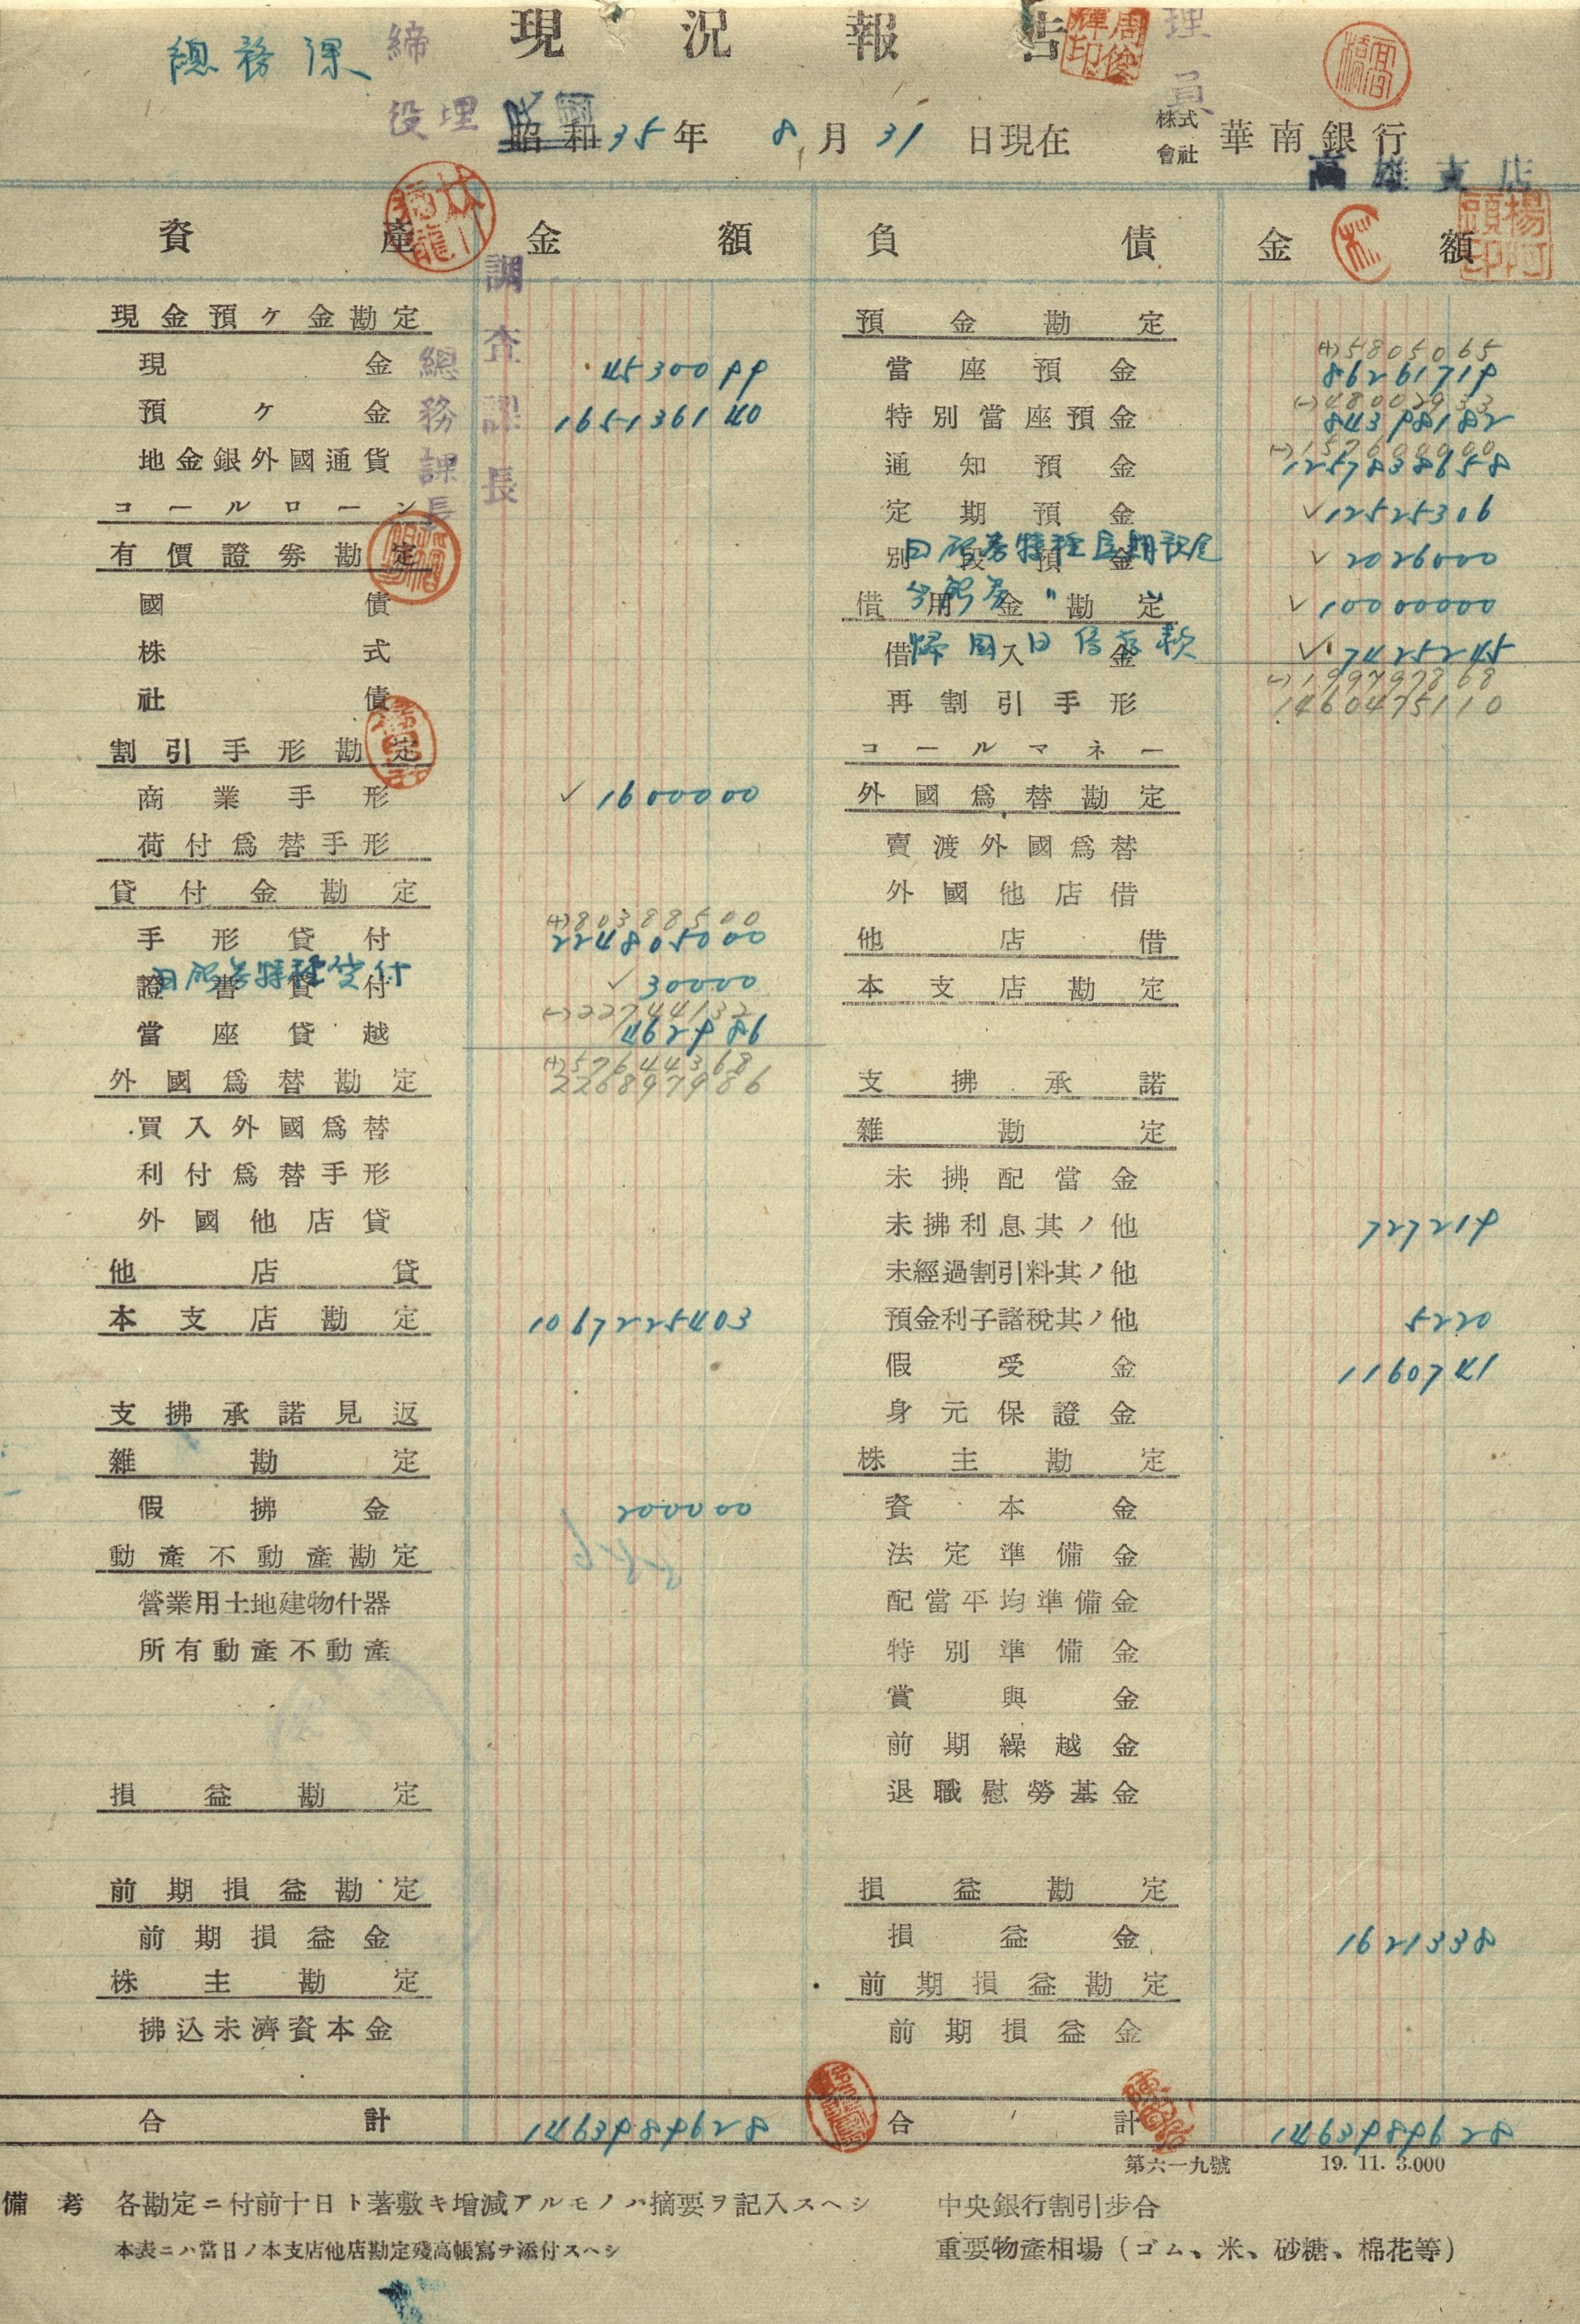 現況報告
總務課
締
役理
理員
昭和 民國 35年 8月31日現在 株式會社 華南銀行
高雄支店
資產 金額 負債 金額
調査課長
總務課長
現金預ヶ金勘定
現金 4530099
預ヶ金 165136140
地金銀外國通貨
コールローン
有價證劵勘定
國債
株式
社債
割引手形勘定
商業手形 ✓1600000
荷付爲替手形
貸付金勘定
手形貸付 (+)80388500
224805000
證書貸付 ✓30000
當座貸越 (-)22744132
462986
外國爲替勘定 (+)57644368
226897986
買入外國爲替
利付爲替手形
外國他店貸
他店貸
本支店勘定 1067225403
支拂承諾見返
雜勘定
假拂金 200000
動產不動產勘定
營業用土地建物什器
所有動產不動產
損益勘定
前期損益勘定
前期損益金
株主勘定
拂込未濟資本金
合計 1463989628
預金勘定
當座預金 (+)5805065
86261719
特別當座預金 (-)48002933
84398182
通知預金 (-)157600000
1257838658
定期預金 ✓12525306
別段預金 ✓2026000
借用金勘定 ✓10000000
借入金 ✓7425245
歸國日僑存款
再割引手形 (-)199797868
1460475110
コールマネー
外國爲替勘定
賣渡外國爲替
外國他店借
他店借
本支店勘定
支拂承諾
雜勘定
未拂配當金
未拂利息其ノ他 727219
未經過割引料其ノ他
預金利子諸稅其ノ他 5220
假受金 1160741
身元保證金
株主勘定
資本金
法定準備金
配當平均準備金
特別準備金
賞與金
前期繰越金
退職慰勞基金
損益勘定
損益金 1621338
前期損益勘定
前期損益金
合計 1463989628
第六一九號 19. 11. 3.000
備考 各勘定ニ付前十日ト著敷キ增減アルモノハ摘要ヲ記入スヘシ
本表ニハ當日ノ本支店他店勘定殘高帳寫ヲ添付スヘシ
中央銀行割引步合
重要物產相場（ゴム、米、砂糖、棉花等）